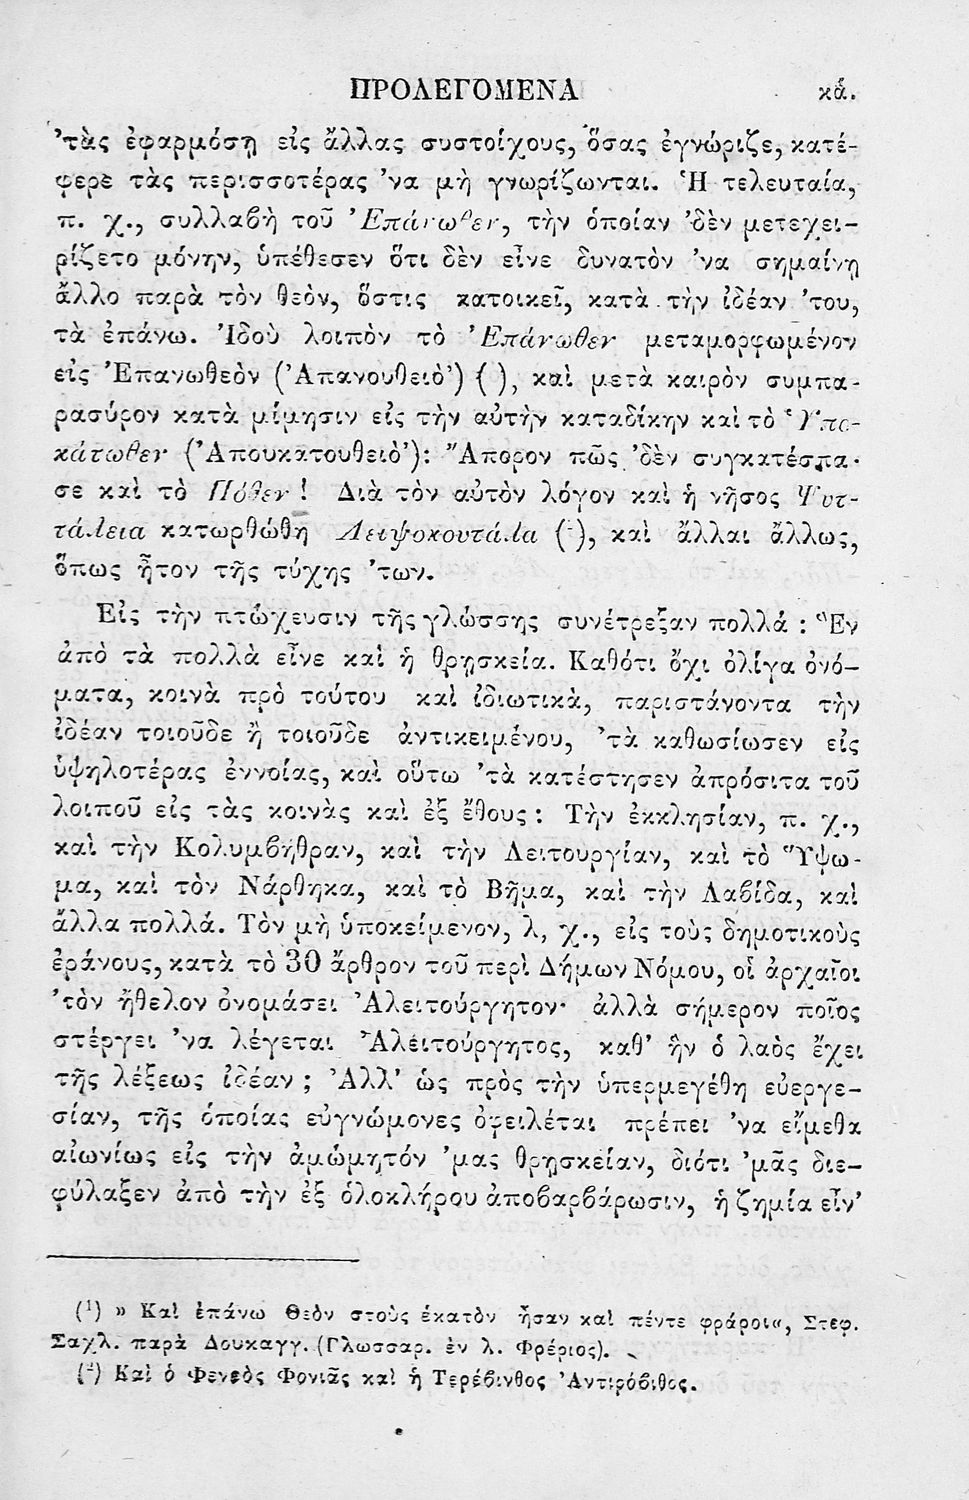 ΠΡΟΛΕΓΟΜΕΝΑ κά.
'τὰς ἐφαρμόσῃ εἰς ἄλλας συστοίχους, ὅσας ἐγνώριζε, κατέ-
φερε τὰς περισσοτέρας 'να μὴ γνωρίζωνται. Ἡ τελευταία,
π. χ., συλλαβὴ τοῦ Ἐπάνωθεν, τὴν ὁποίαν 'δὲν μετεχει-
ρίζετο μόνην, ὑπέθεσεν ὅτι δὲν εἶνε δυνατὸν 'να σημαίνῃ
ἄλλο παρὰ τὸν θεὸν, ὅστις κατοικεῖ, κατὰ τὴν ἰδέαν 'του,
τὰ ἐπάνω. Ἰδοὺ λοιπὸν τὸ Ἐπάνωθεν μεταμορφωμένον
εἰς Ἐπανωθεὸν ('Απανουθειὸ') ( ), καὶ μετὰ καιρὸν συμπα-
ρασύρον κατὰ μίμησιν εἰς τὴν αὐτὴν καταδίκην καὶ τὸ Ὑπο-
κάτωθεν ('Απουκατουθειὸ'): Ἄπορον πῶς 'δὲν συγκατέσπα-
σε καὶ τὸ Πόθεν! Διὰ τὸν αὐτὸν λόγον καὶ ἡ νῆσος Ψυτ-
τάλεια κατωρθώθη Λειψοκουτάλα (²), καὶ ἄλλαι ἄλλως,
ὅπως ἦτον τῆς τύχης 'των.
Εἰς τὴν πτώχευσιν τῆς γλώσσης συνέτρεξαν πολλά : Ἓν
ἀπὸ τὰ πολλὰ εἶνε καὶ ἡ θρησκεία. Καθότι ὄχι ὀλίγα ὀνό-
ματα, κοινὰ πρὸ τούτου καὶ ἰδιωτικὰ, παριστάνοντα τὴν
ἰδέαν τοιοῦδε ἢ τοιοῦδε ἀντικειμένου, 'τὰ καθωσίωσεν εἰς
ὑψηλοτέρας ἐννοίας, καὶ οὕτω 'τὰ κατέστησεν ἀπρόσιτα τοῦ
λοιποῦ εἰς τὰς κοινὰς καὶ ἐξ ἔθους : Τὴν ἐκκλησίαν, π. χ.,
καὶ τὴν Κολυμβήθραν, καὶ τὴν Λειτουργίαν, καὶ τὸ Ὕψω-
μα, καὶ τὸν Νάρθηκα, καὶ τὸ Βῆμα, καὶ τὴν Λαβίδα, καὶ
ἄλλα πολλά. Τὸν μὴ ὑποκείμενον, λ, χ., εἰς τοὺς δημοτικοὺς
ἐράνους, κατὰ τὸ 30 ἄρθρον τοῦ περὶ Δήμων Νόμου, οἱ ἀρχαῖοι
'τὸν ἤθελον ὀνομάσει Ἀλειτούργητον· ἀλλὰ σήμερον ποῖος
στέργει 'να λέγεται Ἀλειτούργητος, καθ' ἣν ὁ λαὸς ἔχει
τῆς λέξεως ἰδέαν ; Ἀλλ' ὡς πρὸς τὴν ὑπερμεγέθη εὐεργε-
σίαν, τῆς ὁποίας εὐγνώμονες ὀφειλέται πρέπει 'να εἴμεθα
αἰωνίως εἰς τὴν ἀμώμητόν 'μας θρησκείαν, διότι 'μᾶς διε-
φύλαξεν ἀπὸ τὴν ἐξ ὁλοκλήρου ἀποβαρβάρωσιν, ἡ ζημία εἶν'
(¹) » Καὶ ἐπάνω Θεὸν στοὺς ἑκατὸν ἦσαν καὶ πέντε φράροι«, Στεφ.
Σαχλ. παρὰ Δουκαγγ. (Γλωσσαρ. ἐν λ. Φρέριος).
(²) Καὶ ὁ Φενεὸς Φονιᾶς καὶ ἡ Τερέβινθος Ἀντιρόβιθος.